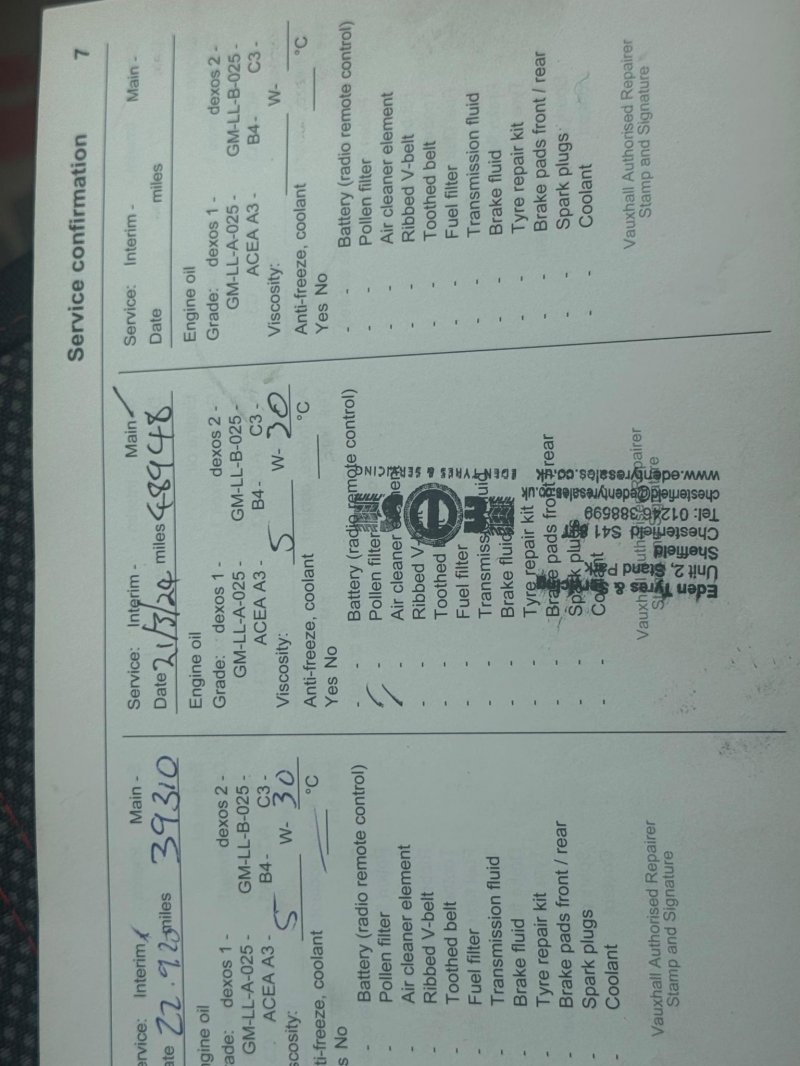 Service confirmation 7
ervice: Interim Main -
ate 22.9.20 miles 39310
ngine oil
ade: dexos 1 - dexos 2 -
GM-LL-A-025 - GM-LL-B-025 -
ACEA A3 - B4 - C3 -
scosity: 5 W- 30
ti-freeze, coolant °C
s No
- - Battery (radio remote control)
- - Pollen filter
- - Air cleaner element
- - Ribbed V-belt
- - Toothed belt
- - Fuel filter
- - Transmission fluid
- - Brake fluid
- - Tyre repair kit
- - Brake pads front / rear
- - Spark plugs
- - Coolant
Vauxhall Authorised Repairer
Stamp and Signature
Service: Interim - Main ✓
Date 21/3/24 miles 48948
Engine oil
Grade: dexos 1 - dexos 2 -
GM-LL-A-025 - GM-LL-B-025 -
ACEA A3 - B4 - C3 -
Viscosity: 5 W- 30
Anti-freeze, coolant °C
Yes No
- - Battery (radio remote control)
- Pollen filter
- Air cleaner element
- - Ribbed V-
- - Toothed
- - Fuel filter
- - Transmission fluid
- - Brake fluid
- - Tyre repair kit
- - Brake pads front / rear
- - Spark plugs
- - Coolant
Vauxhall Authorised Repairer
EDEN TYRES & SERVICING
Eden Tyres & Servicing
Unit 2,
Sheffield
Chesterfield S41
Tel: 01246 388599
chesterfield@edentyresales.co.uk
www.edentyresales.co.uk
Service: Interim - Main -
Date miles
Engine oil
Grade: dexos 1 - dexos 2 -
GM-LL-A-025 - GM-LL-B-025 -
ACEA A3 - B4 - C3 -
Viscosity: W-
Anti-freeze, coolant °C
Yes No
- - Battery (radio remote control)
- - Pollen filter
- - Air cleaner element
- - Ribbed V-belt
- - Toothed belt
- - Fuel filter
- - Transmission fluid
- - Brake fluid
- - Tyre repair kit
- - Brake pads front / rear
- - Spark plugs
- - Coolant
Vauxhall Authorised Repairer
Stamp and Signature